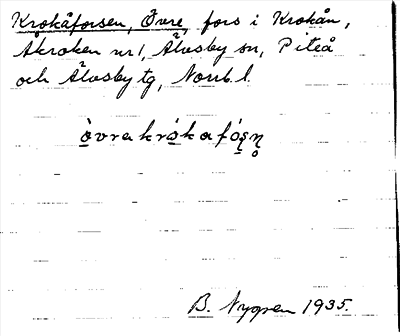 Krokåforsen, Övre, fors i Krokån,
Åkroken nr 1, Älvsby sn, Piteå
och Älvsby tg, Norrb. l.
òvrakrókafósn̥
B. Nygren 1935.